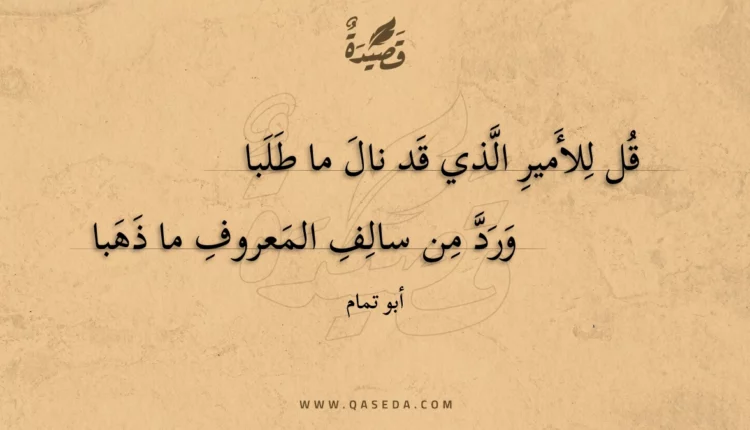 قَصِيدَةٌ
قُل لِلأَميرِ الَّذي قَد نالَ ما طَلَبا
وَرَدَّ مِن سالِفِ المَعروفِ ما ذَهَبا
أبو تمام
WWW.QASEDA.COM